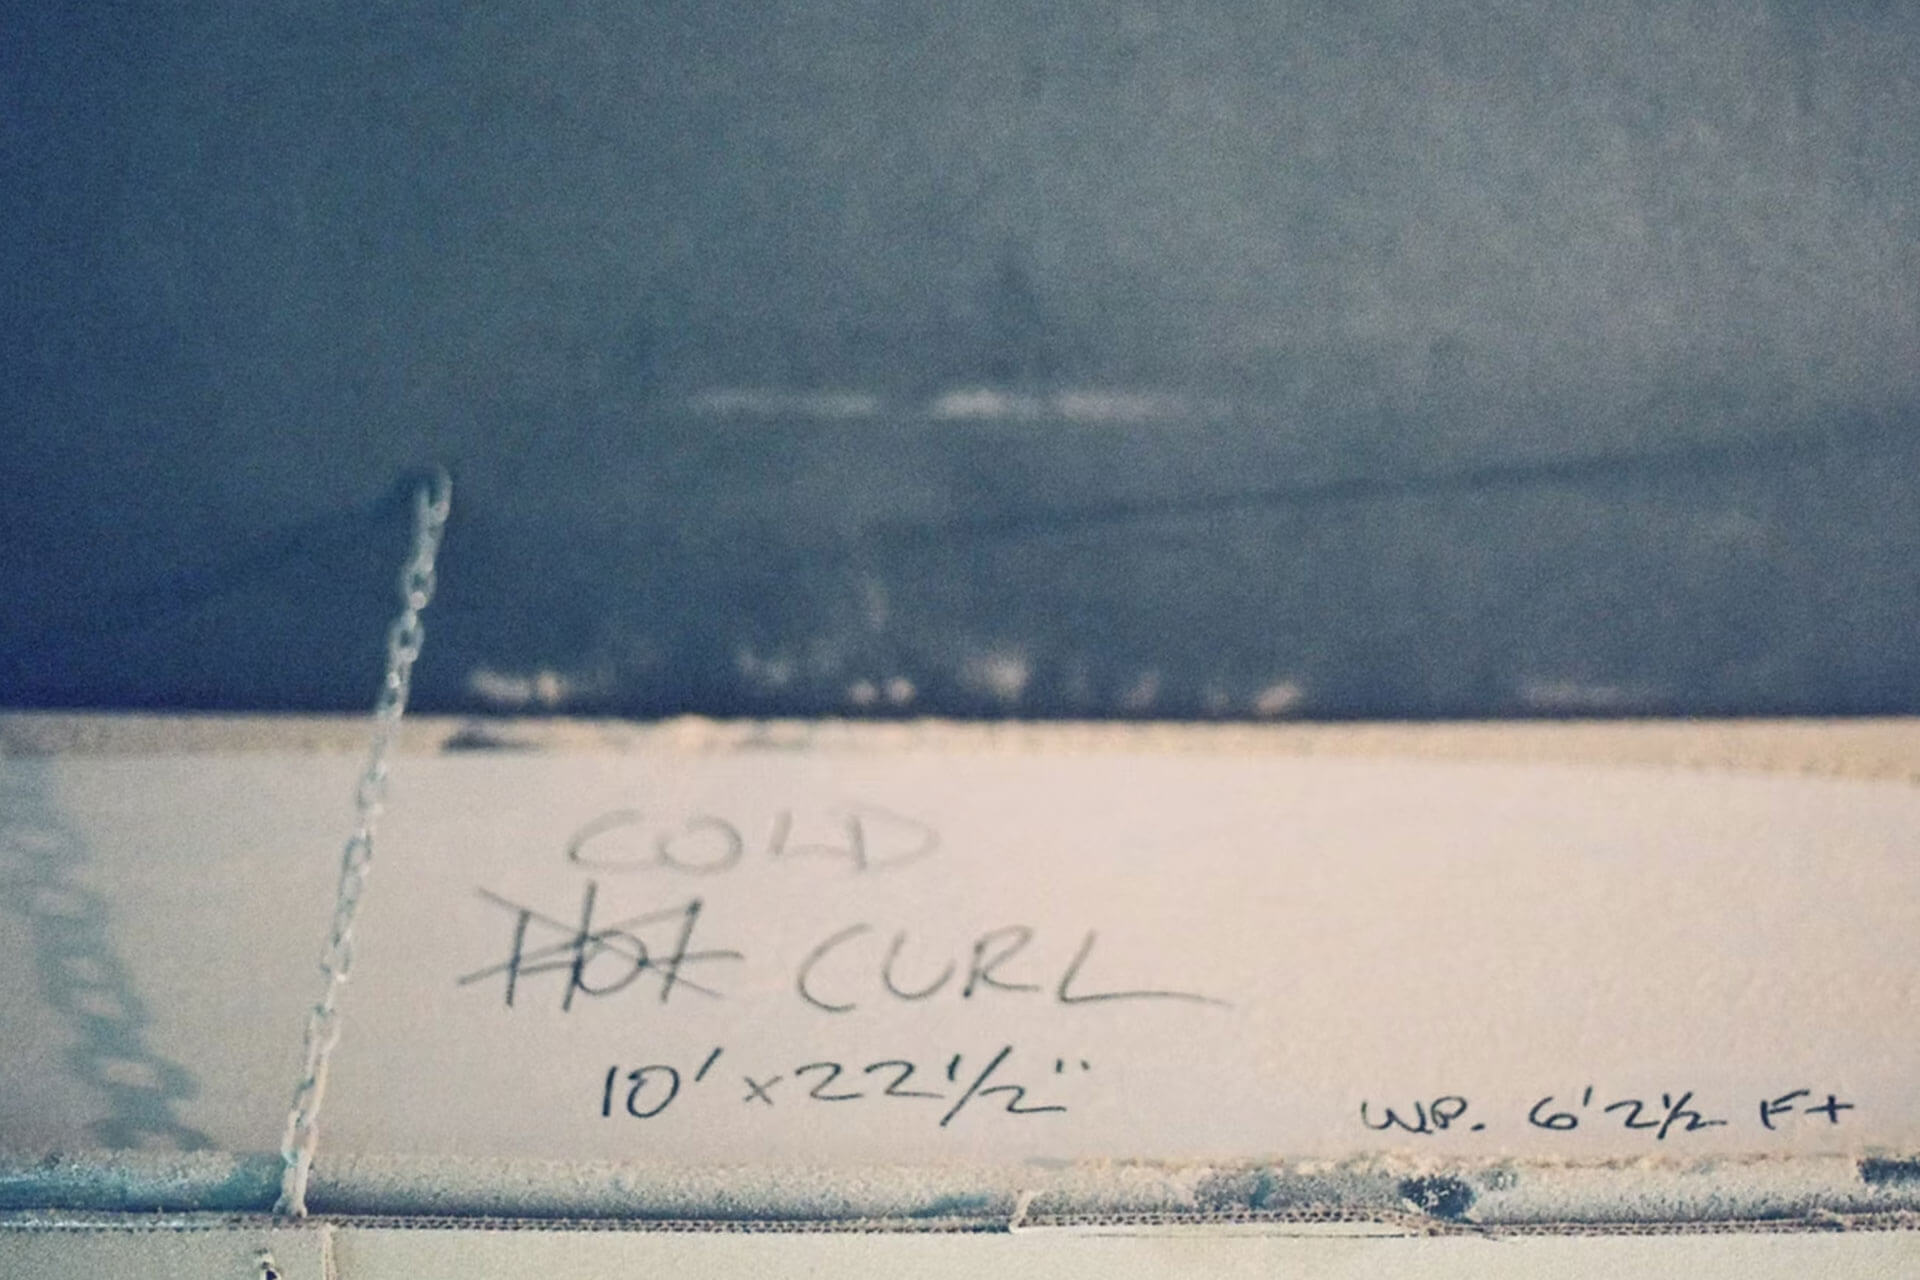 COLD
HOT CURL
10' x 22 1/2"
W.P. 6' 2 1/2 F+